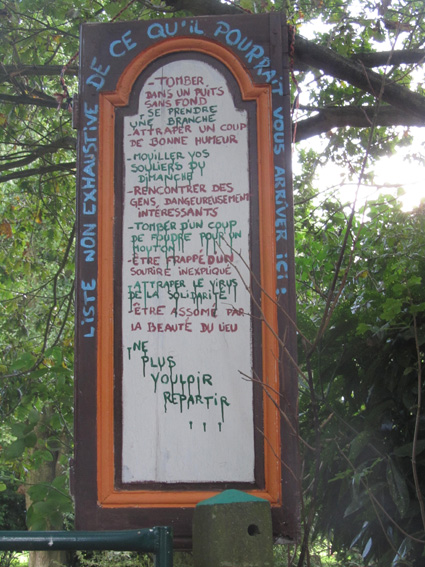 LISTE NON EXHAUSTIVE DE CE QU'IL POURRAIT VOUS ARRIVER ICI :
-TOMBER
DANS UN PUITS
SANS FOND
-SE PRENDRE
UNE BRANCHE
-ATTRAPER UN COUP
DE BONNE HUMEUR
-MOUILLER VOS
SOULIERS DU
DIMANCHE
-RENCONTRER DES
GENS DANGEUREUSEMENT
INTÉRESSANTS
-TOMBER D'UN COUP
DE FOUDRE POUR UN
MOUTON
-ÊTRE FRAPPÉ D'UN
SOURIRE INEXPLIQUÉ
-ATTRAPER LE VIRUS
DE LA SOLIDARITÉ
-ÊTRE ASSOMÉ PAR
LA BEAUTÉ DU LIEU
-NE
PLUS
VOULOIR
REPARTIR
...